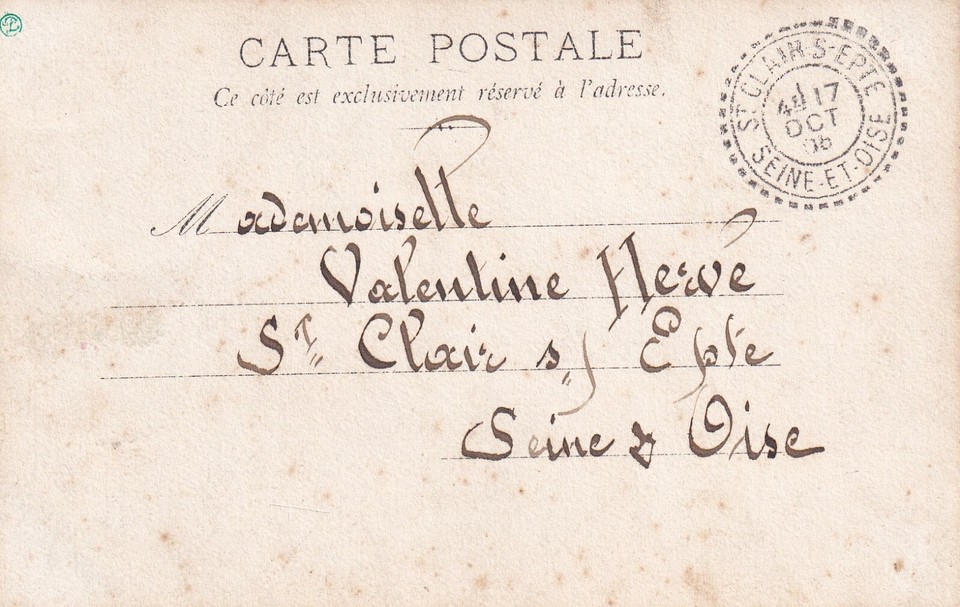 CARTE POSTALE
Ce côté est exclusivement réservé à l'adresse.
ST CLAIR-S-EPTE
17
OCT
SEINE-ET-OISE
Mademoiselle
Valentine Hervé
St Clair s/ Epte
Seine & Oise